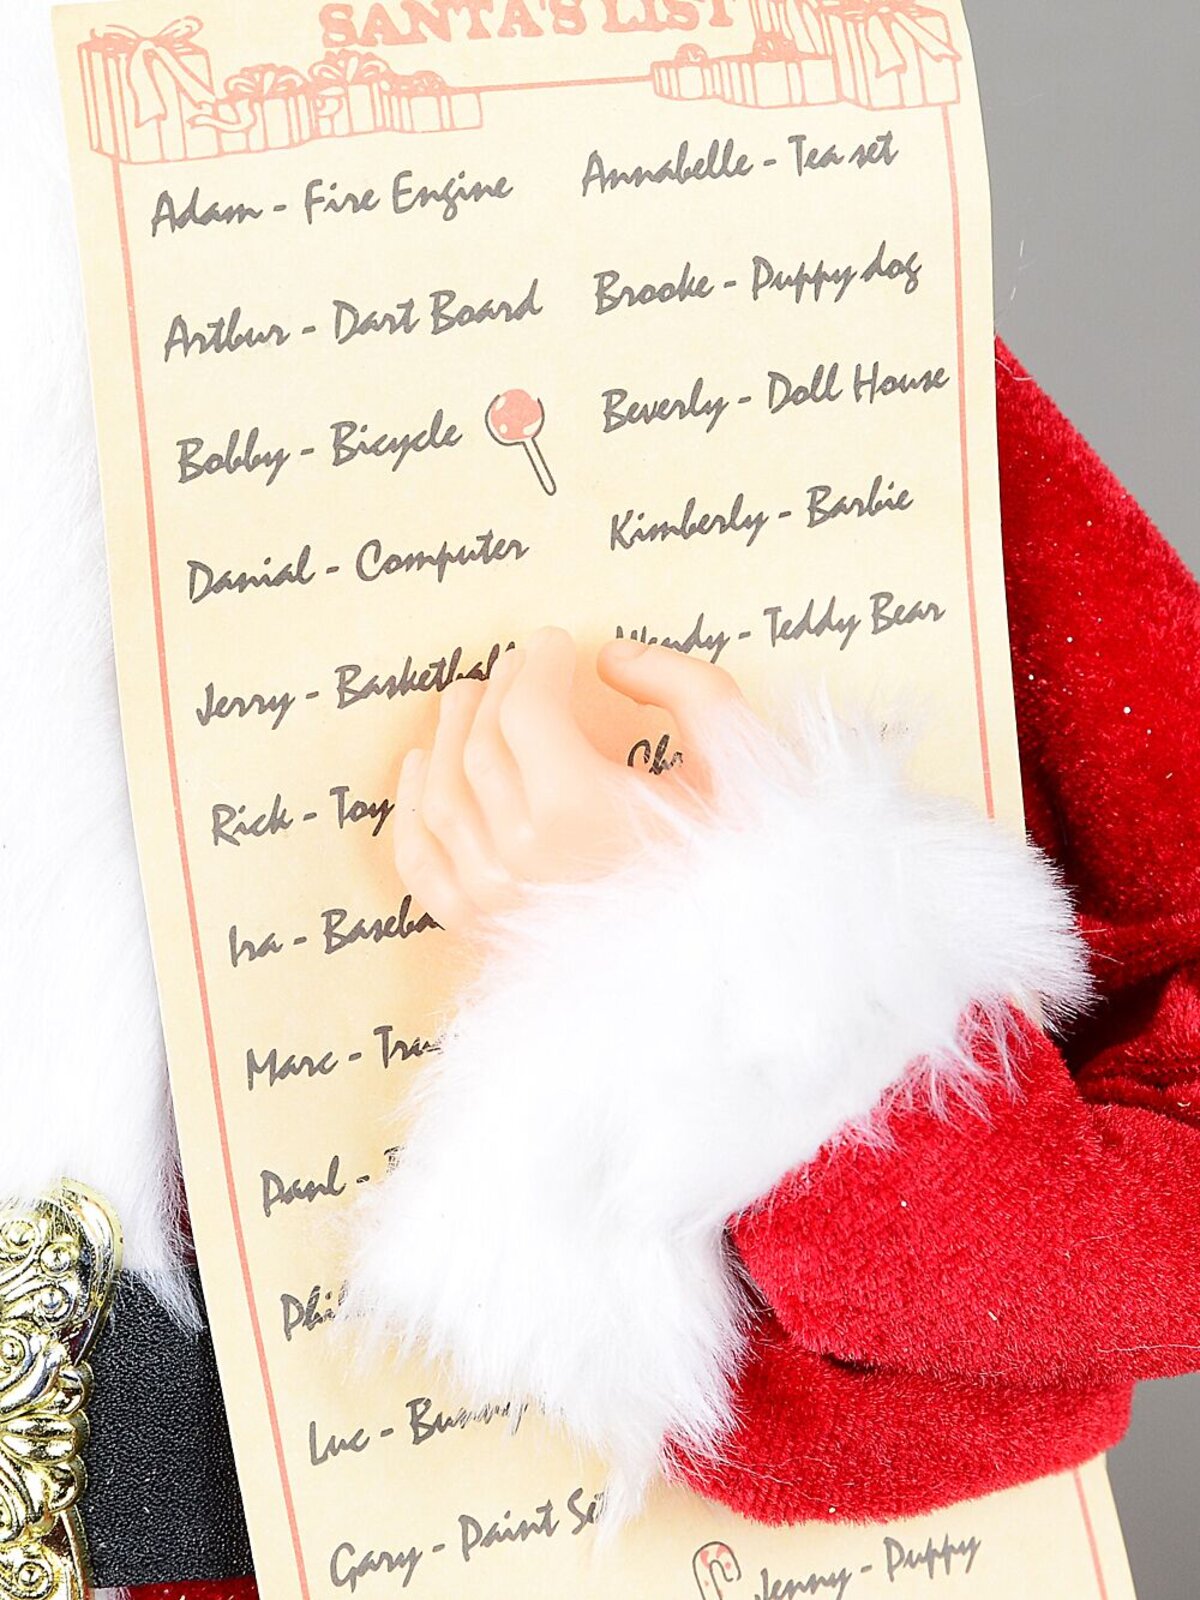 SANTA'S LIST
Adam - Fire Engine
Arthur - Dart Board
Bobby - Bicycle
Danial - Computer
Jerry - Basketball
Rick - Toy
Ira -
Marc -
Paul -
Luc -
Gary - Paint
Annabelle - Tea set
Brooke - Puppy dog
Beverly - Doll House
Kimberly - Barbie
Wendy - Teddy Bear
Jenny - Puppy